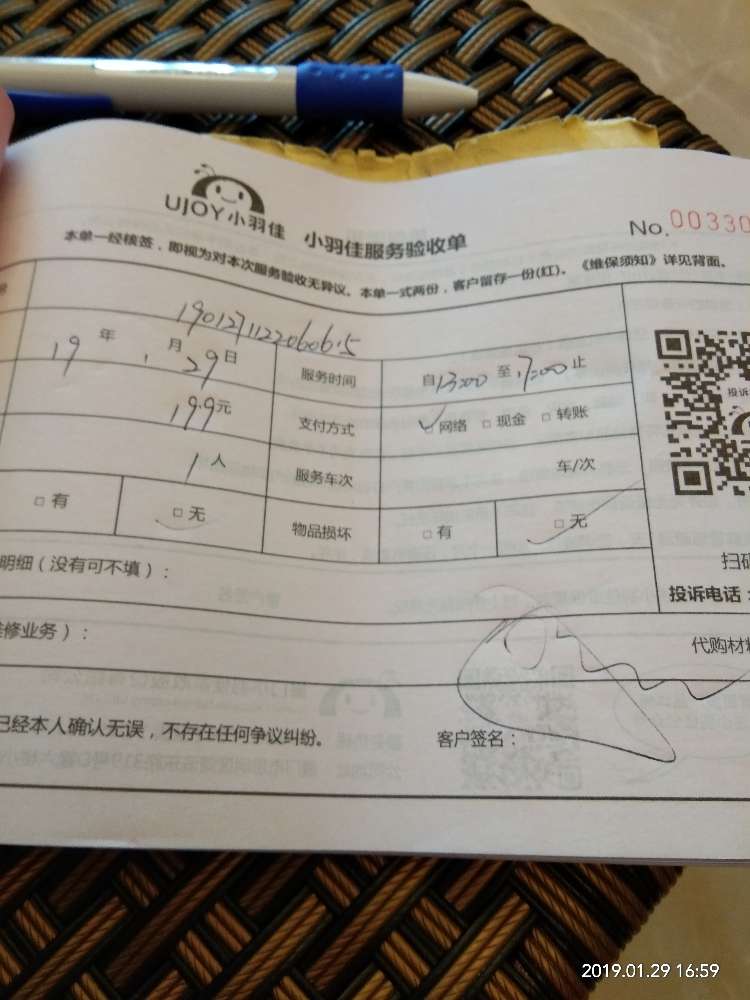 UJOY小羽佳 小羽佳服务验收单 No.00330
本单一经核签，即视为对本次服务验收无异议。本单一式两份，客户留存一份(红)。《维保须知》详见背面。
19 年 1 月 29 日 服务时间 自13:00 至 17:00 止
199元 支付方式 □网络 □现金 □转账
1人 服务车次 车/次
□有 □无 物品损坏 □有 □无
明细（没有可不填）：
扫码
投诉电话：
维修业务）：
代购材料
已经本人确认无误，不存在任何争议纠纷。 客户签名：
2019.01.29 16:59